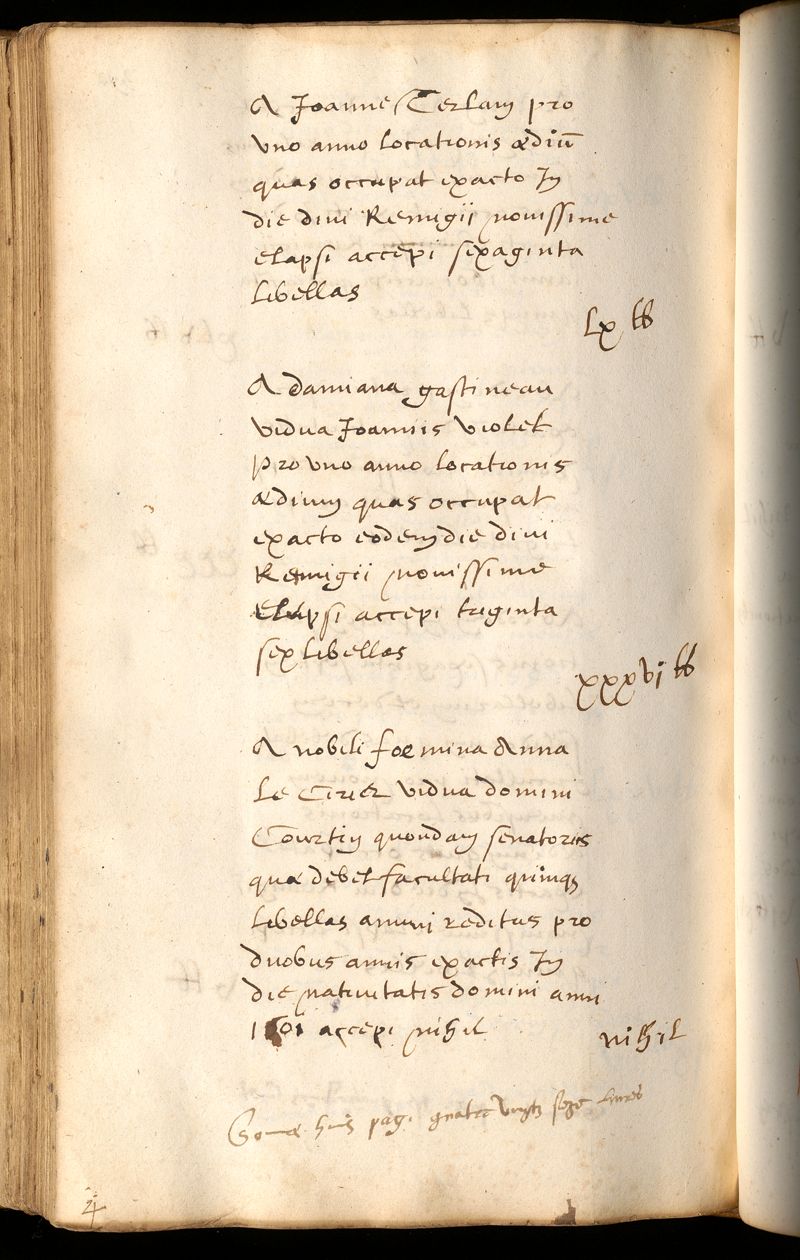 A Joanne Terlam pro
vno anno locationis ædiū
quas occupat exacto In
die divi Remigii novissime
elapsi accepi sexaginta
libellas
lx ℔
A damiana gastineau
vidua Joannis violet
pro vno anno locationis
ædium quas occupat
exacto eodem die divi
Remigii novissime
elapsi accepi triginta
sex libellas
xxxvi ℔
A nobili foemina Anna
Le Cirier vidua domini
Courtin quondam senatoris
quæ debet facultati quinqȝ
libellas annui reditus pro
duobus annis exactis In
die nativitatis domini anni
1601 accepi nihil
nihil
pagi quatre vingtz seze livres
4